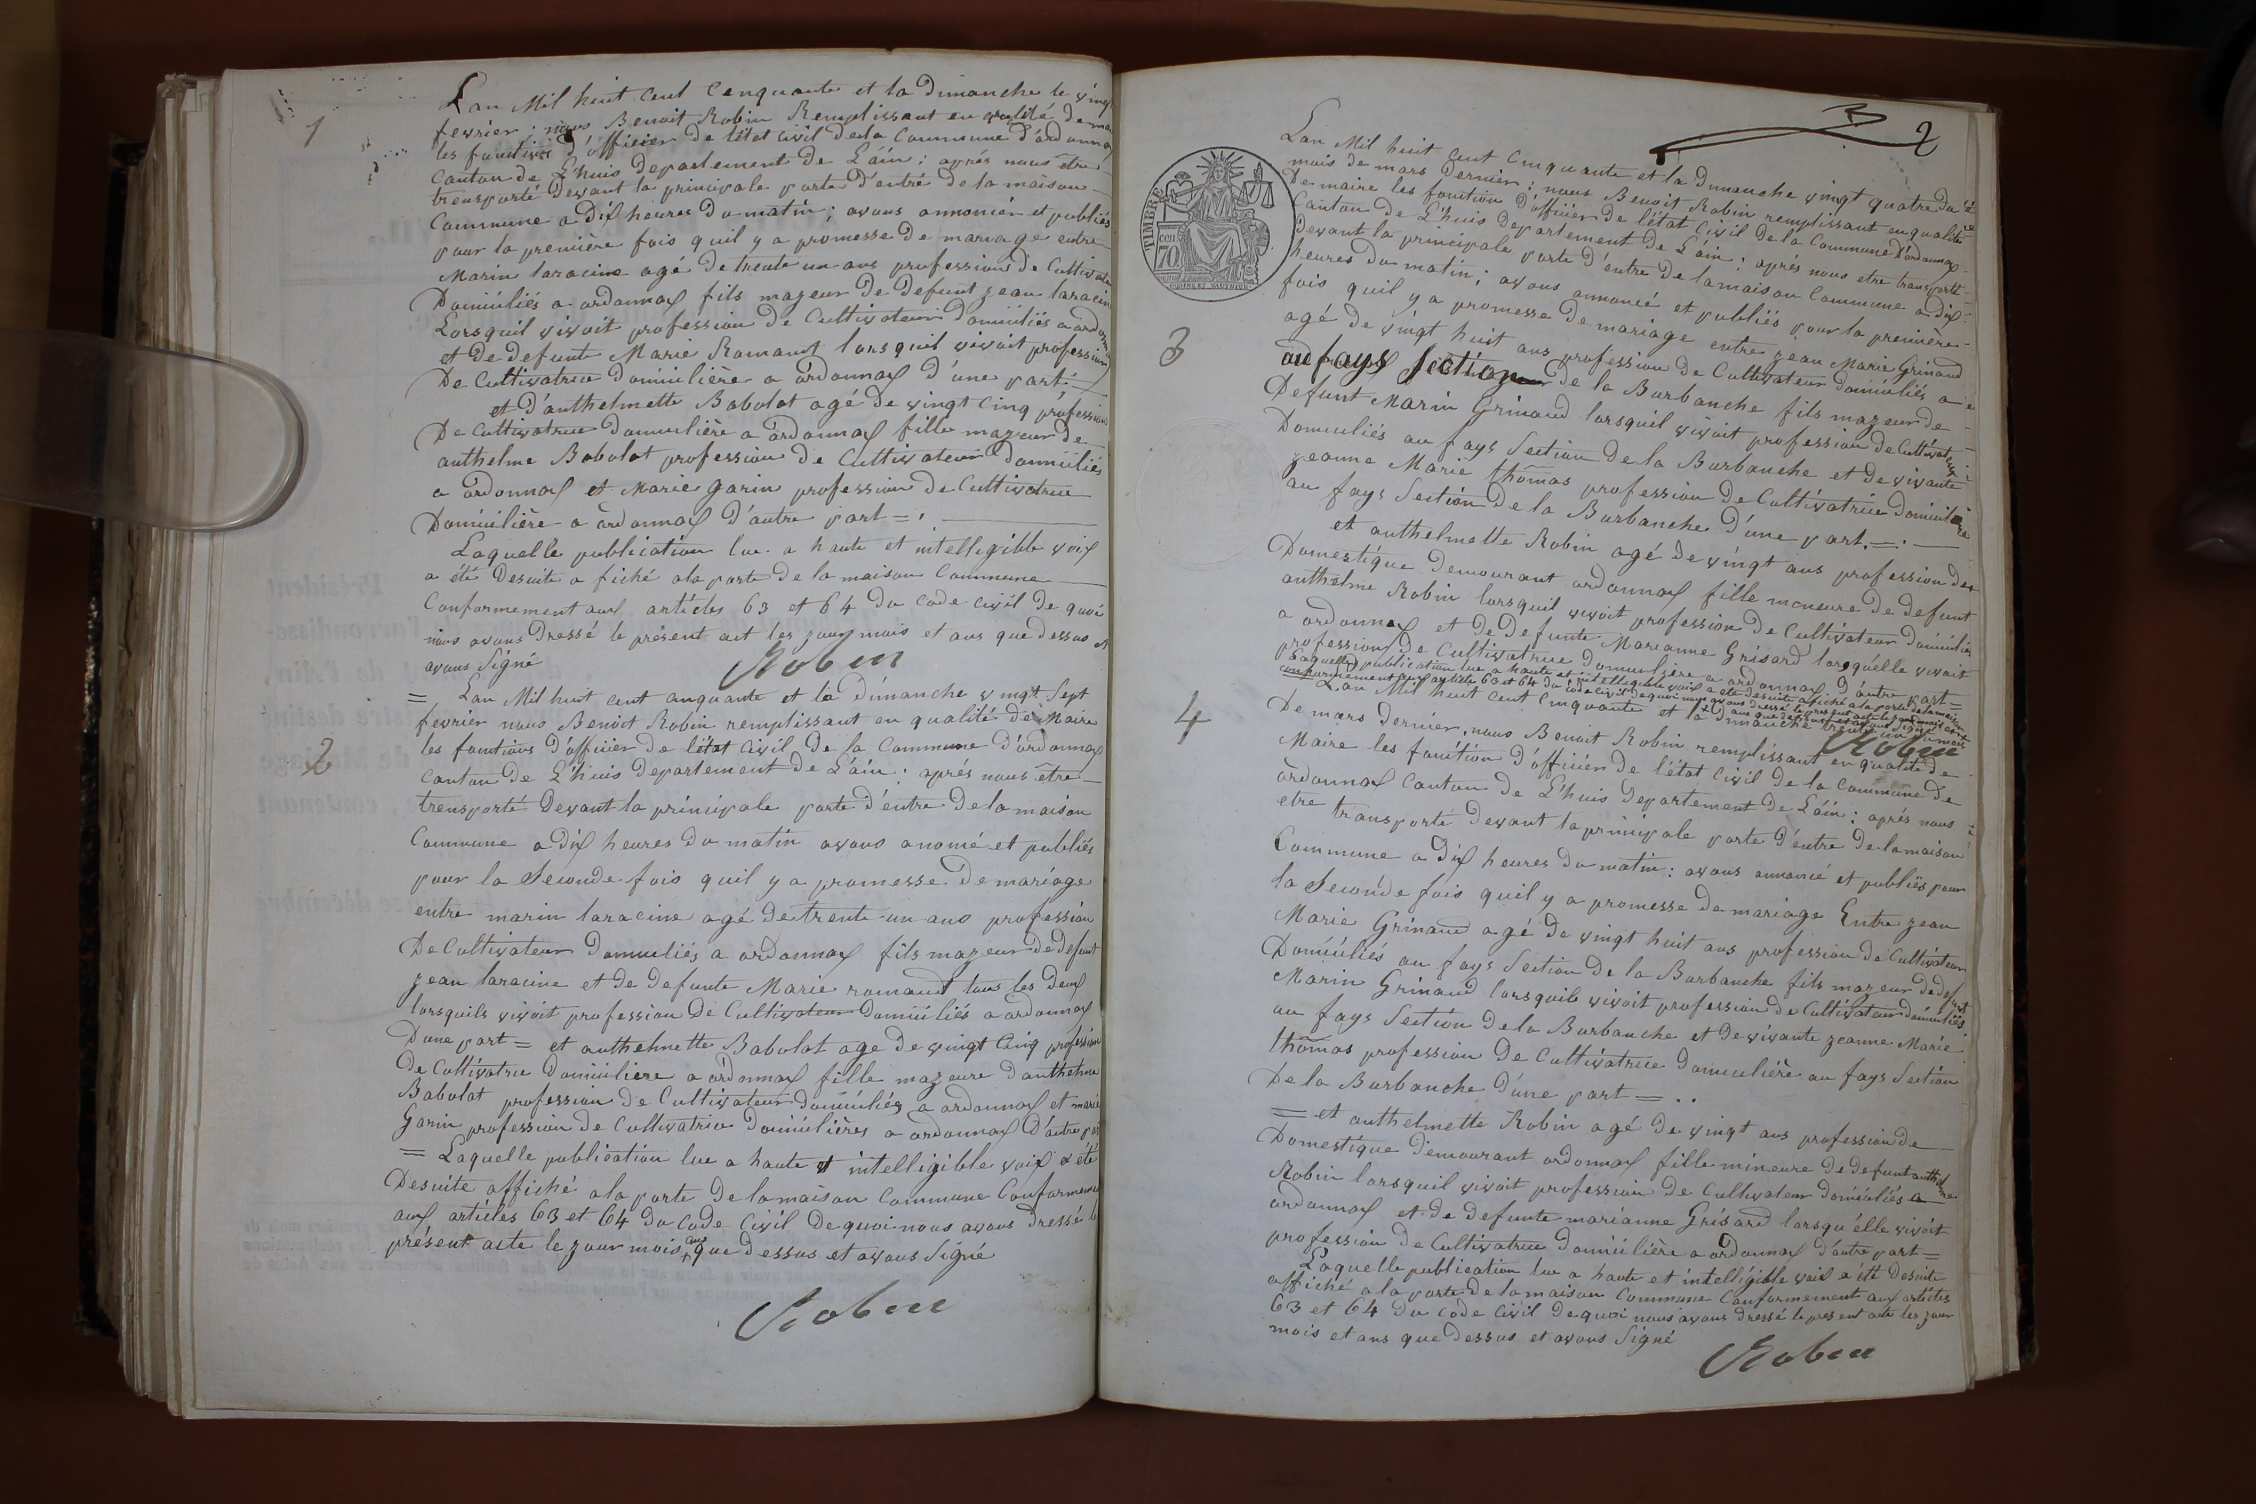 1
Lan Mil huit cent cenquante et la dimanche le vingt
fevrier ; nous Benoit Robin Remplissant en qualité de
les fonctions d'officier de létat civil dela Commune d'ordonnax
Canton de L'huis departement de L'áin : aprés nous être
trensporté devant la principale porte d'entré de la maison
Commune a dix heures du matin ; avons annoncér et publiés
pour la première fois quil y a promesse de mariage entre
Marin laracine agé de trente un ans profession de Cultivateur
Domiciliés a ordonnax fils mazeur de defunt zean laracine
Lorsquil vivoit profession de Cultivateur domiciliés a ordonnax
et de defunte Marie Ramand lors quil vivoit profession
De Cultivatrice domicilière a ordonnax d'une part =
et d'anthelmette Babolat agé de vingt cinq profession
De Cultivatrice domicilière a ordonnax fille mazeur de
anthelme Babolat profession de Cultivateur domiciliés
a ordonnax et Marie garin profession de Cultivatrice
Domicilière a ordonnax d'autre part = .
Laquelle publication lue a haute et intelligible voix
a été desuite a fiché ala porte de la maison Commune
Conformement aux artícles 63 et 64 du code civil de quoi
nous avons dressé le présent act les zour mois et ans que dessus et
avons signé
Robin
2
= Lan Mil huit cent cinquante et la dimanche vingt sept
fevrier nous Benoit Robin remplissant en qualité de Maire
les fonctions d'officier de létat civil de la Commune d'ordonnax
canton de L'huis departement de L'áin : aprés nous être
trensporté devant la principale porte d'entre de la maison
Commune a dix heures du matin avons anoncé et publiés
pour la Seconde fois quil y a promesse de mariage
entre marin laracine agé de trente un ans profession
De Cultivateur domiciliés a ordonnax fils mazeur de defunt
zean laracine et de defunte Marie ramand tous les deux
lorsquils vivoit profession de Cultivateur domiciliés a ordonnax
D'une part = et anthelmette Babolat age de vingt cinq profession
de Cultivatrice domiciliere a ordonnax fille mazeure d'anthelme
Babolat profession de Cultivateur domiciliés a ordonnax et marie
Garin profession de Cultivatrice domicilières a ordonnax d'autre part
= Laquelle publication lue a haute et intelligible voix a été
Desuite affiché ala porte de la maison Commune Conformement
aux artícles 63 et 64 du code civil de quoi nous avons dressé le
présent acte le zour mois ans que dessus et avons signé
Robin
2
TIMBRE
70
Lan Mil huit cent cinquante et la dimanche vingt quatre du
mois de mars dernier ; nous Benoit Robin remplissant en qualité
De maire les fonction d'officier de l'état civil de la Commune d'ordonnax
Canton de L'huis departement de L'áin : aprés nous etre transporté
Devant la principale porte d'entre de la maison Commune a dix
heures du matin ; avons annoncé et publiés pour la première
fois quil y a promesse de mariage entre zean Marie Grinand
3
agé de vingt huit ans profession de Cultivateur domiciliés a
au fays Section de la Burbanche fils mazeur de
Defunt Marin Grinand lorsquil vivoit profession de Cultivateur
Domiciliés au fays Section de la Burbanche et de vivante
zeanne Marie thômas profession de Cultivatrice domicilière
au fays Section de la Burbanche d'une part. = .
et anthelmette Robin agé de vingt ans profession de
Domestíque demourant ordonnax fille moneure de defunt
anthelme Robin lorsquil vivoit profession de Cultivateur domiciliés
a ordonnax et de defunte Marianne Grisard lorsquélle vivait
profession de Cultivatrice domicilière a ordonnax d'autre part =
Laquelle publication lue a haute et intellegible voix a été desuite affiché ala porte de la maison
conformement aux article 63 et 64 du code civil de quoi nous avons dressé le present acte les zour mois
et ans que dessus et avons signé
Robin
4
Lan Mil huit cent cinquante et la dimanche trente un du mois
De mars dernier, nous Benoit Robin remplissant en qualité de
Maire les fonítion d'officier de l'état civil de la Commune de
ordonnax Canton de L'huis departement de L'áin : aprés nous
etre transporté devant la principale porte d'entre de la maison
Commune a dix heures du matin : avons annoncé et publiés pour
la Seconde fois quil y a promesse de mariage Entre zean
Marie Grinand agé de vingt huit ans profession de Cultivateur
Domiciliés au fays Section de la Burbanche fils mazeur de defunt
Marin Grinand lorsquils vivoit profession de Cultivateur domiciliés
au fays Section de la Burbanche et de vivante zeanne Marie
thômas profession de Cultivatrice domicilière au fays Section
De la Burbanche d'une part = . .
= et anthelmette Robin agé de vingt ans profession de
Domestíque demourant ordonnax fille mineure de defunt anthelme
Robin lorsquil vivoit profession de Cultivateur domiciliés a
ordonnax et de defunte marianne Grisard lorsqu'élle vivoit
profession de Cultivatrice domicilière a ordonnax d'autre part =
Laquelle publication lue a haute et intelligible voix a été desuite
affiché ala porte de la maison Commune Conformement aux artícles
63 et 64 du code civil de quoi nous avons dressé le present acte les zour
mois et ans que dessus et avons signé
Robin